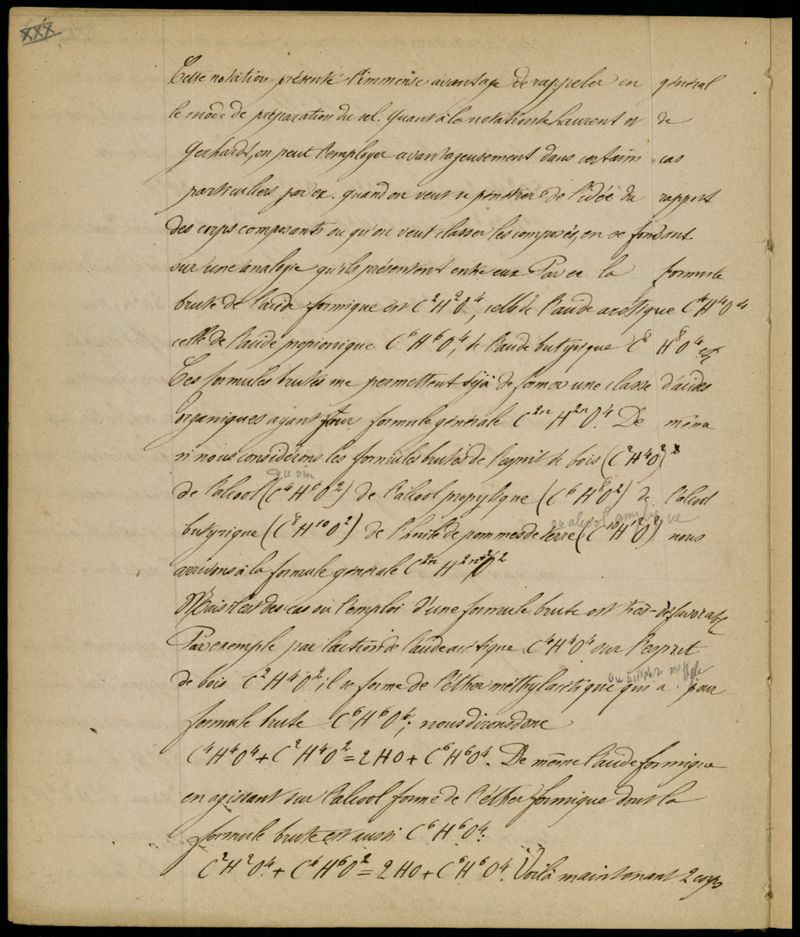 XXX
Cette notation présente l'immense avantage de rappeler en général
le mode de préparation du sel. Quant à la notation de Laurent et de
Gerhardt, on peut l'employer avantageusement dans certains cas
particuliers par ex. quand on veut se pénétrer de l'idée du rapport
des corps composants ou qu'on veut classer les composés, en se fondant
sur une analogie qu'ils présentent entre eux Par ex la formule
brute de l'acide formique est C²H²O⁴, celle de l'acide acétique C⁴H⁴O⁴
celle de l'acide propionique C⁶H⁶O⁴, de l'acide butyrique C⁸H⁸O⁴ etc
Ces formules brutes me permettent déjà de former une classe d'acides
organiques ayant pour formule générale C²ⁿH²ⁿO⁴. De même
si nous considérons les formules brutes de l'esprit de bois (C²H⁴O²)
de l'alcool (C⁴H⁶O²) de l'alcool propylique (C⁶H⁸O²) de l'alcool
ou alcool amylique
butyrique (C⁸H¹⁰O²) de l'huile de pommes de terre (C¹⁰H¹²O²) nous
arrivons à la formule générale C²ⁿH²ⁿ⁺²O²
Mais il est des cas où l'emploi d'une formule brute est très-défavorable
Par exemple par l'action de l'acide acétique C⁴H⁴O⁴ sur l'esprit
de bois C²H⁴O², il se forme de l'éther méthylacétique qui a pour
formule brute C⁶H⁶O⁴; nous dirons donc
C⁴H⁴O⁴ + C²H⁴O² = 2HO + C⁶H⁶O⁴. De même l'acide formique
en agissant sur l'alcool forme de l'éther formique dont la
formule brute est aussi C⁶H⁶O⁴.
C²H²O⁴ + C⁴H⁶O² = 2HO + C⁶H⁶O⁴. Voilà maintenant 2 corps